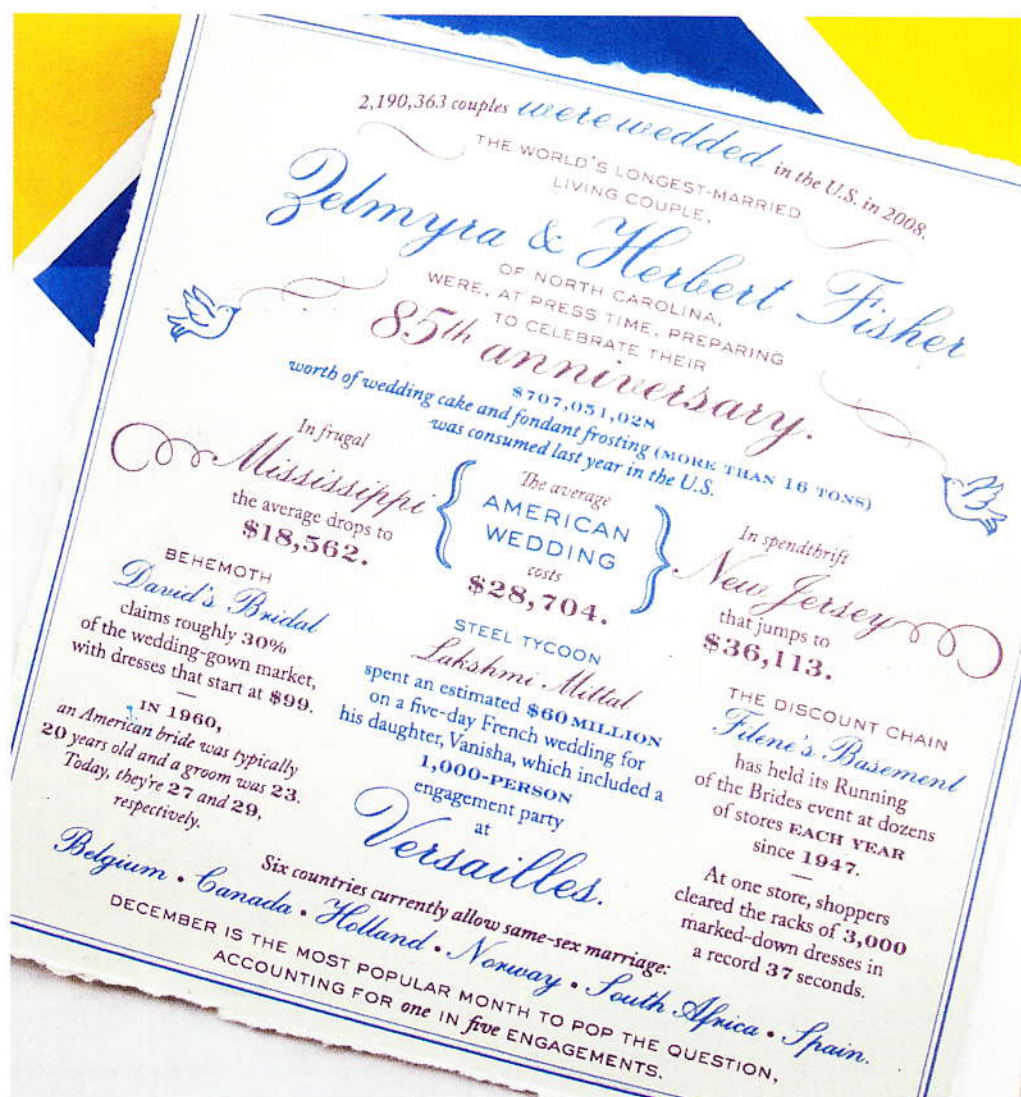 2,190,363 couples were wedded in the U.S. in 2008.
THE WORLD'S LONGEST-MARRIED
LIVING COUPLE,
Zelmyra & Herbert Fisher
OF NORTH CAROLINA,
WERE, AT PRESS TIME, PREPARING
TO CELEBRATE THEIR
85th anniversary.
$707,051,028
worth of wedding cake and fondant frosting (MORE THAN 16 TONS)
was consumed last year in the U.S.
In frugal
Mississippi
the average drops to
$18,562.
The average
AMERICAN
WEDDING
costs
$28,704.
In spendthrift
New Jersey
that jumps to
$36,113.
BEHEMOTH
David's Bridal
claims roughly 30%
of the wedding-gown market,
with dresses that start at $99.
IN 1960,
an American bride was typically
20 years old and a groom was 23.
Today, they're 27 and 29,
respectively.
STEEL TYCOON
Lakshmi Mittal
spent an estimated $60 MILLION
on a five-day French wedding for
his daughter, Vanisha, which included a
1,000-PERSON
engagement party
at
Versailles.
THE DISCOUNT CHAIN
Filene's Basement
has held its Running
of the Brides event at dozens
of stores EACH YEAR
since 1947.
At one store, shoppers
cleared the racks of 3,000
marked-down dresses in
a record 37 seconds.
Six countries currently allow same-sex marriage:
Belgium • Canada • Holland • Norway • South Africa • Spain.
DECEMBER IS THE MOST POPULAR MONTH TO POP THE QUESTION,
ACCOUNTING FOR one IN five ENGAGEMENTS.